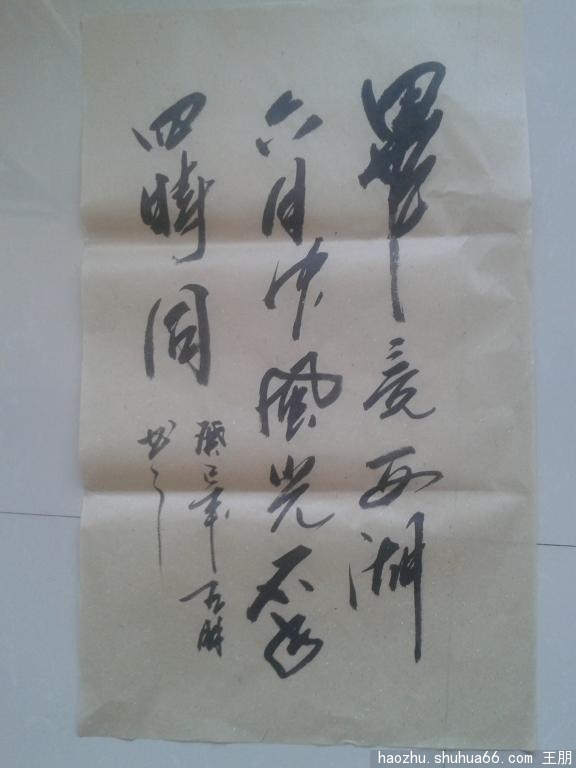 畢竟西湖
六月中風光不與
四時同
癸巳年 王朋
书之
haozhu.shuhua66.com 王朋